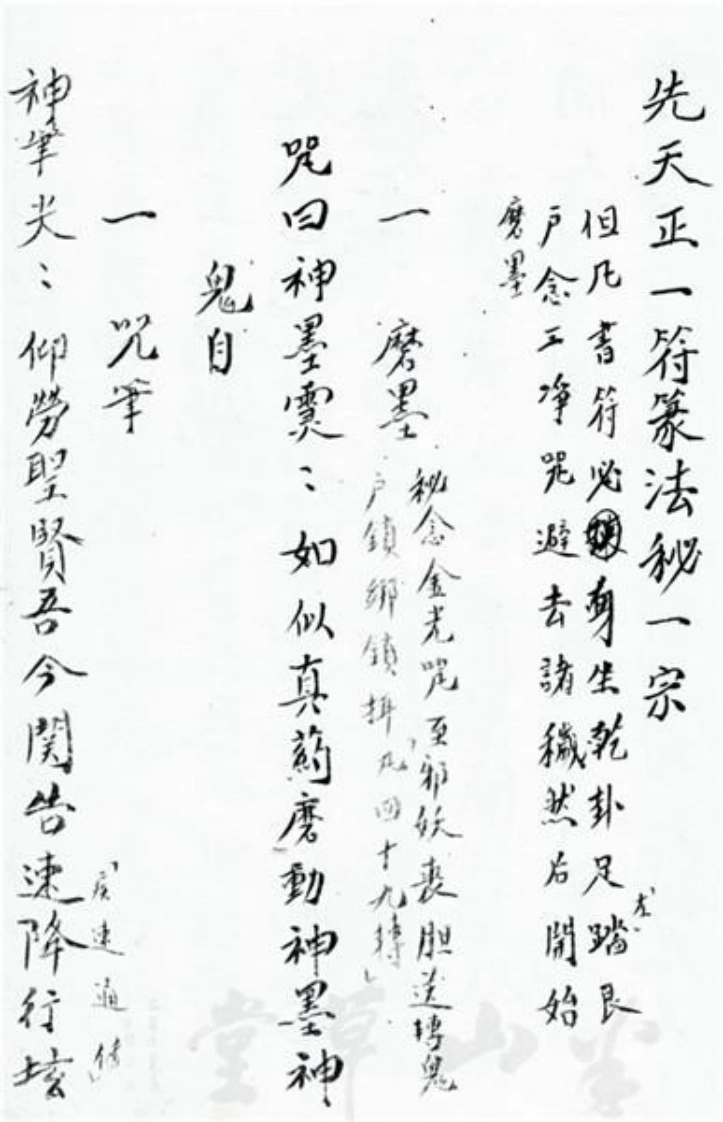 先天正一符篆法秘一宗
但凡書符必身坐乾卦足踏艮
左
戶念三净咒避去諸穢然后開始
磨墨
一 磨墨
秘念金光咒至邪妖喪胆送轉鬼
戶鎖鄉鎖 凡四十九轉
咒曰神墨灵〻如似真药磨動神墨神
鬼自
一 咒筆
速通
神筆尖〻仰勞聖賢吾今関告速降行坛
半山草堂